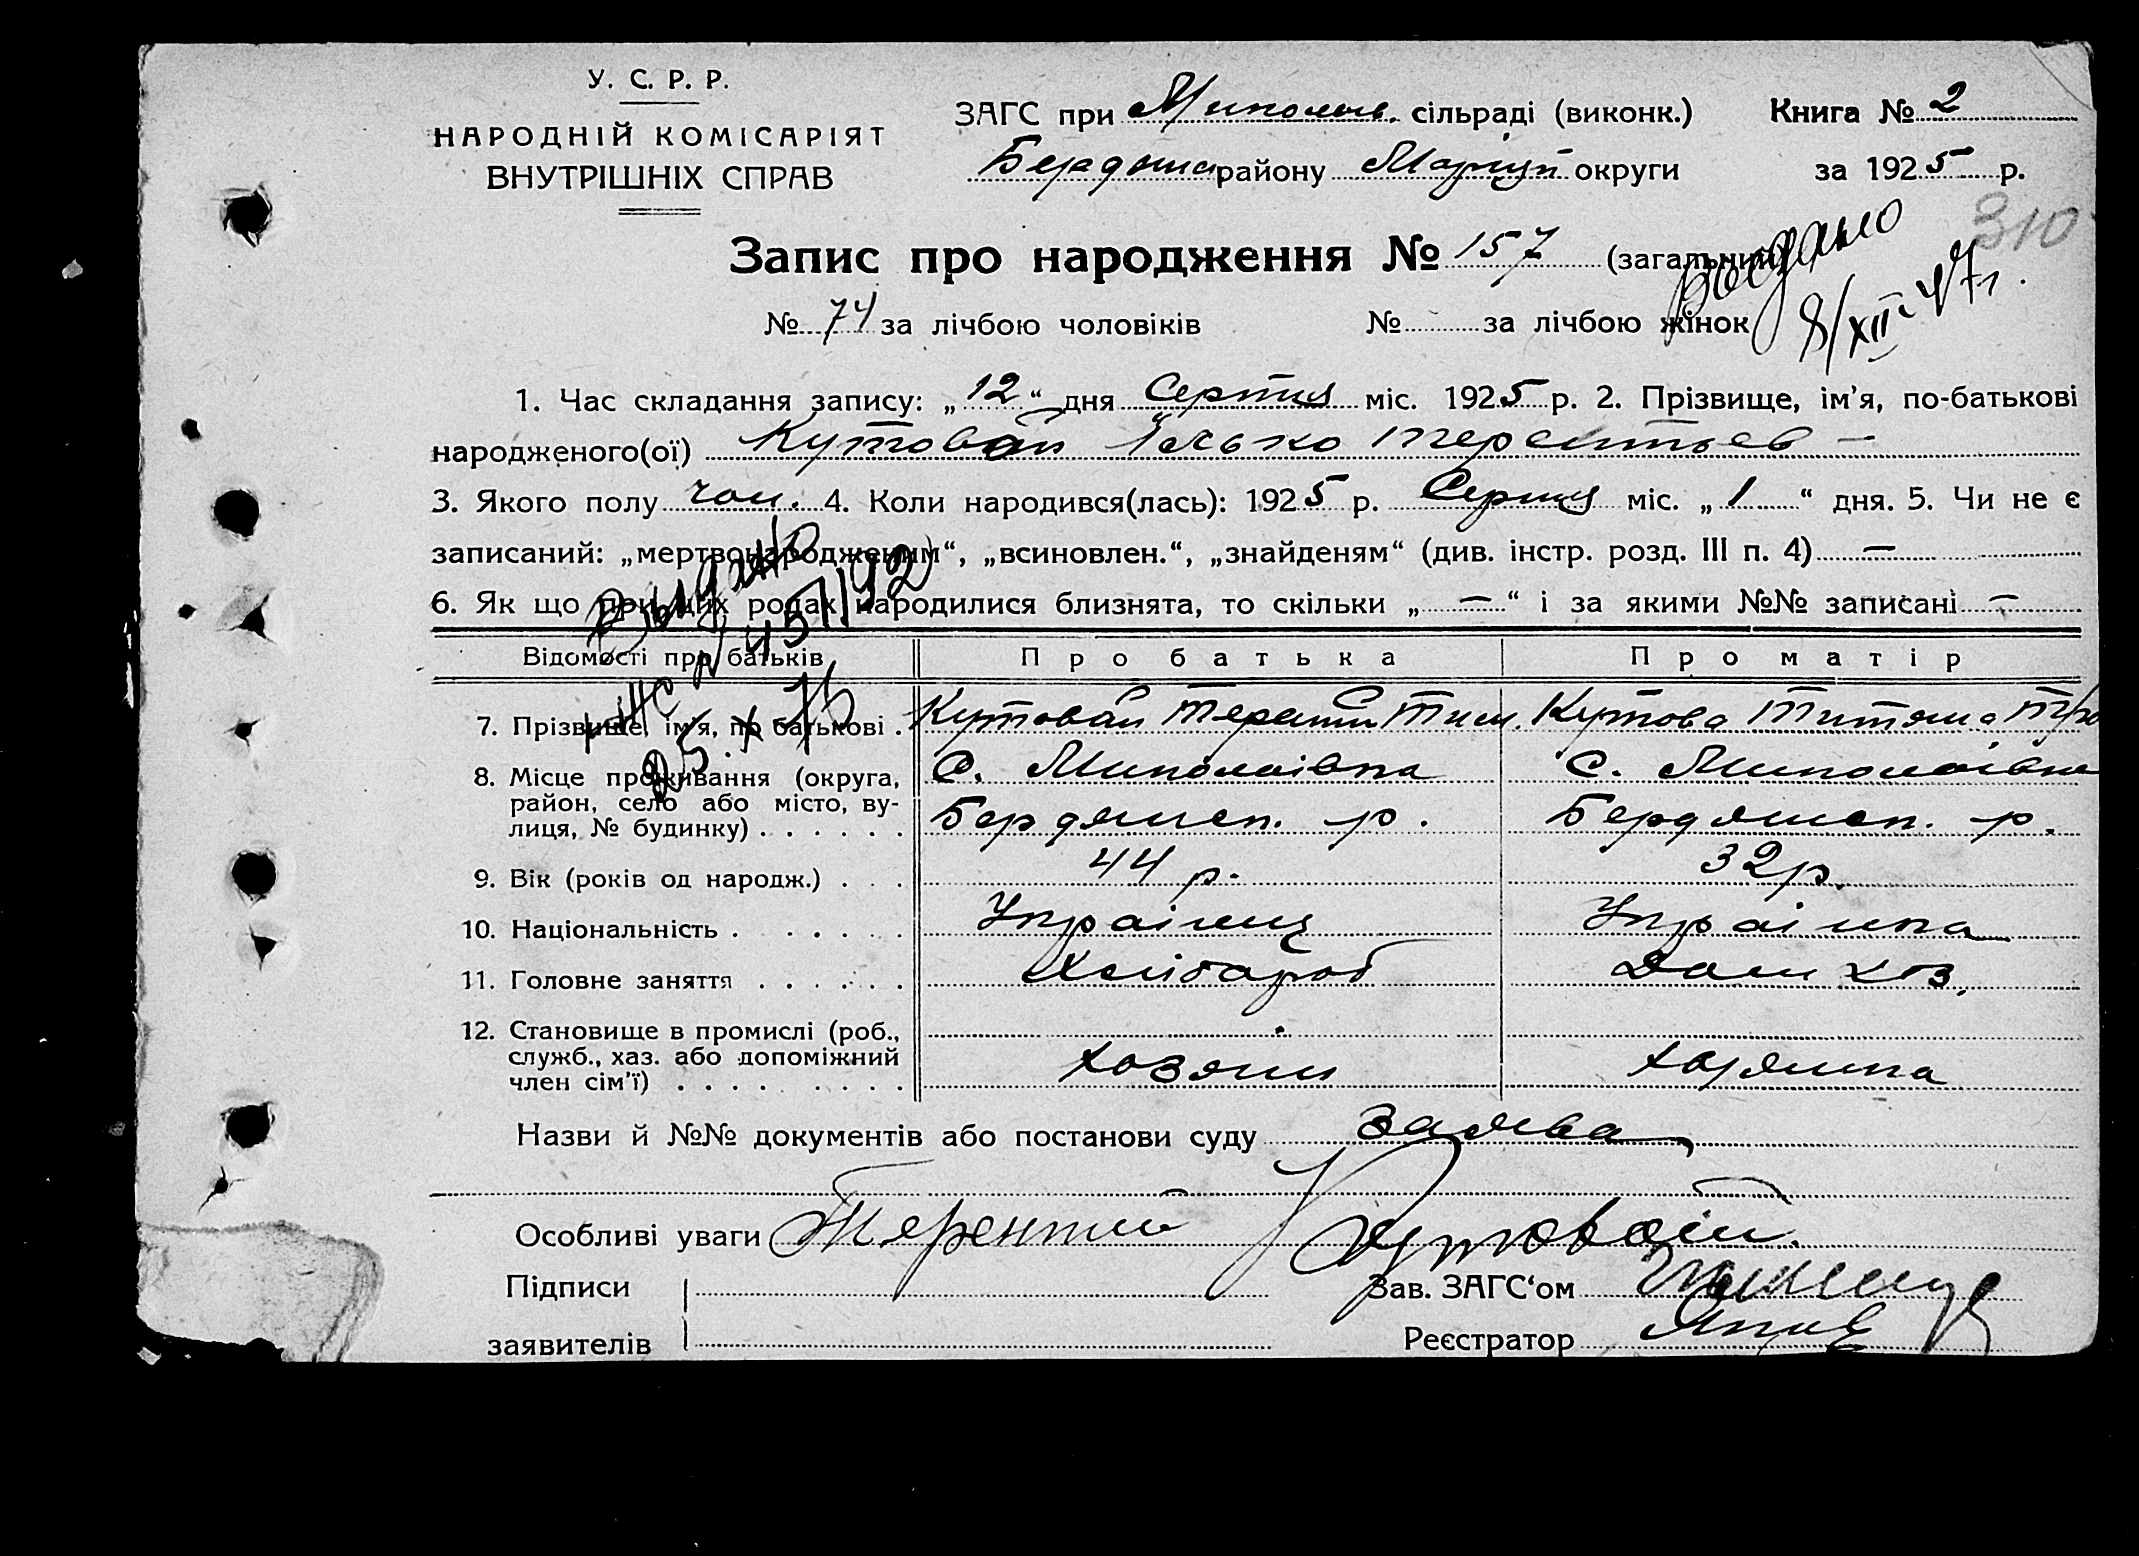 У. С. Р. Р.
НАРОДНІЙ КОМІСАРІЯТ
ВНУТРІШНІХ СПРАВ
ЗАГС при Миколаев. сільраді (виконк.) Книга № 2
Бердянс району Маріуп округи за 1925 р.
310
Запис про народження № 157 (загальний)
Выдано
8/XII-47 г.
№ 74 за лічбою чоловіків № за лічбою жінок
1. Час складання запису: „12“ дня Серпня міс. 1925 р. 2. Прізвище, ім’я, по-батькові
народженого(ої) Кутовой Ілько Терентьев —
3. Якого полу чол. 4. Коли народився(лась): 1925 р. Серпня міс. „1“ дня. 5. Чи не є
записаний: „мертвонародженим“, „всиновлен.“, „знайденям“ (див. інстр. розд. III п. 4) —
6. Як що при цих родах народилися близнята, то скільки „—“ і за якими №№ записані —
Выдано
25.X 75
Відомості про батьків Про батька Про матір
7. Прізвище, ім’я, по батькові . Кутовой Терентій Тим. Кутова Титяна Тро
8. Місце проживання (округа, район, село або місто, вулиця, № будинку) . . . . . . С. Миколаівка С. Миколаівка
Бердянськ. р. Бердянськ. р.
9. Вік (років од народж.) . . . 44 р. 32 р.
10. Національність . . . . . . Українец Українка
11. Головне заняття . . . . . . Хлібароб Дом хоз.
12. Становище в промислі (роб., служб., хаз. або допоміжний член сім’ї) . . . . . . . . . Хозяин Хозяинка
Назви й №№ документів або постанови суду Заява
Особливі уваги Терентий Кутовой.
Підписи Зав. ЗАГС‘ом
заявителів Реєстратор